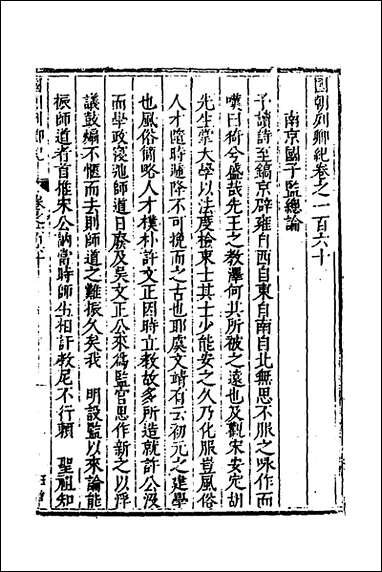 國朝列卿紀卷之一百六十
南京國子監總論
予讀詩至鎬京辟雍自西自東自南自北無思不服之咏作而
嘆曰猗兮盛哉先王之教澤何其所被之遠也及觀宋安定胡
先生掌大學以法度檢束士其士少能安之久乃化服豈風俗
人才隨時遞降不可挽而之古也耶虞文靖有云初元之建學
也風俗簡略人才樸朴許文正因時立教故多所造就許公沒
而學政寖弛師道日廢及吳文正公來爲監官思作新之以浮
議鼓煽不愜而去則師道之難振久矣我 明設監以來論能
振師道者首推宋公訥當時師生相訐教尼不行賴 聖祖知
國朝列卿紀 卷之一百六十 一